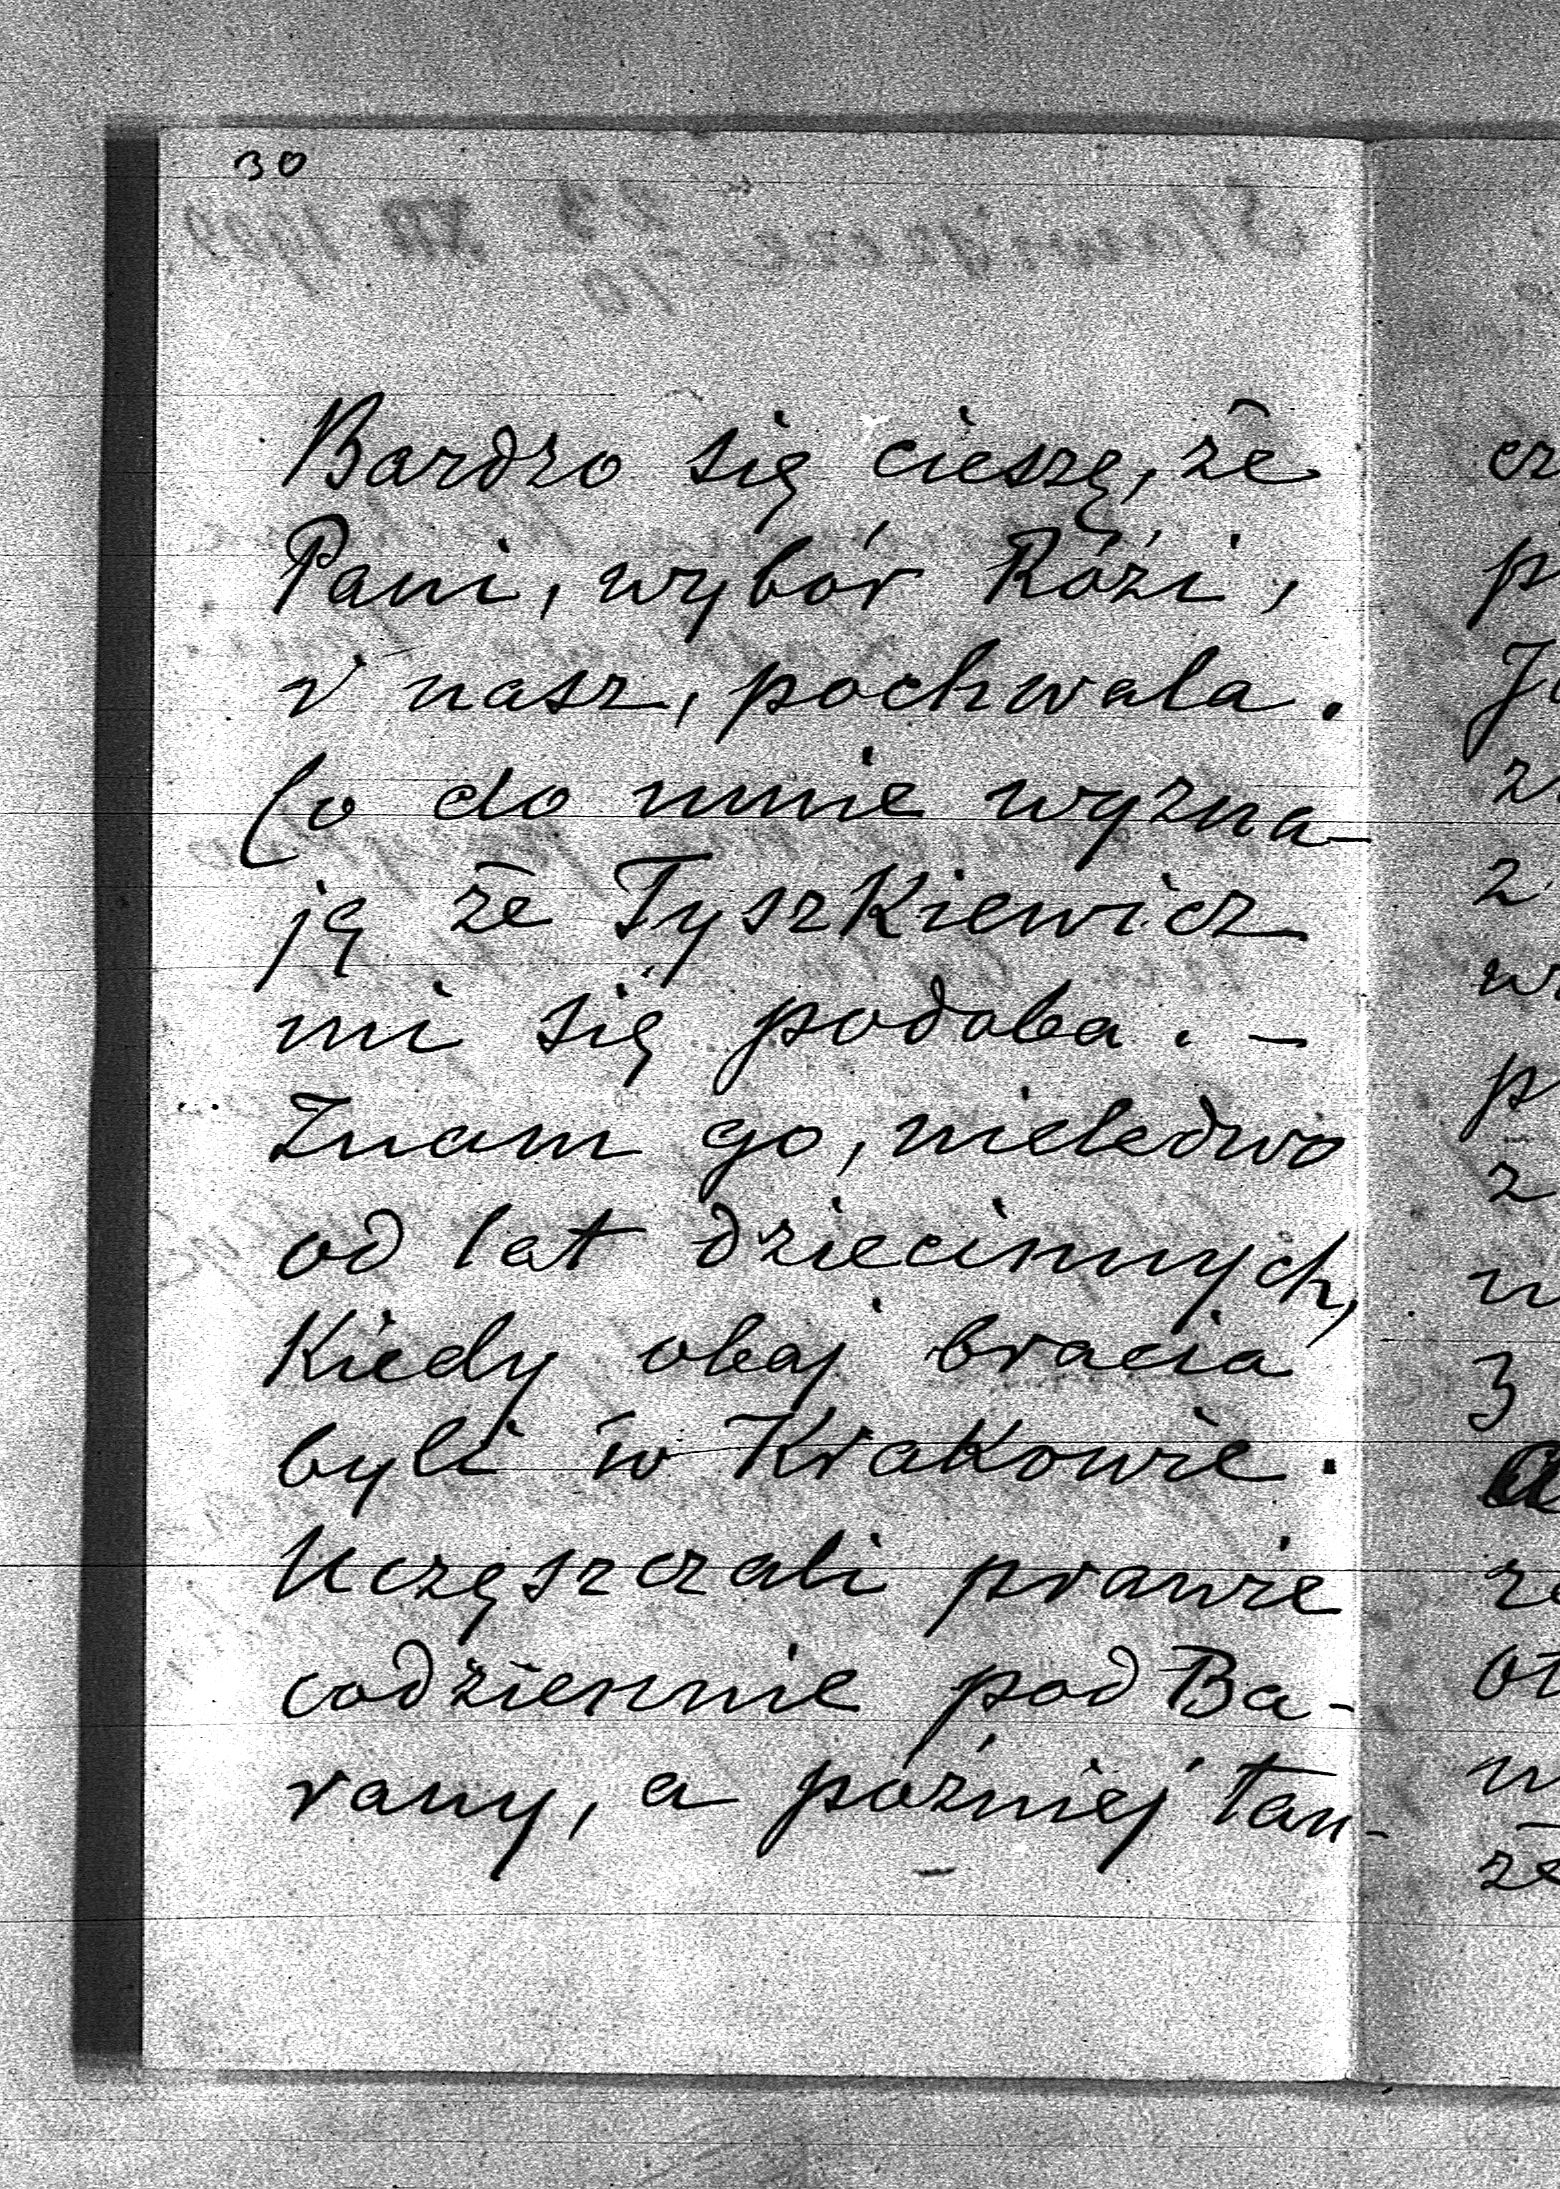 30
Bardzo się cieszę, że
Pani, wybór Rózi,
i nasz, pochwala.
Co do mnie wyzna-
ję że Tyszkiewicz
mi się podoba. –
Znam go, nieledwo
od lat dziecinnych,
Kiedy obaj bracia
byli w Krakowie.
Uczęszczali prawie
codziennie pod Ba-
rany, a później tam-